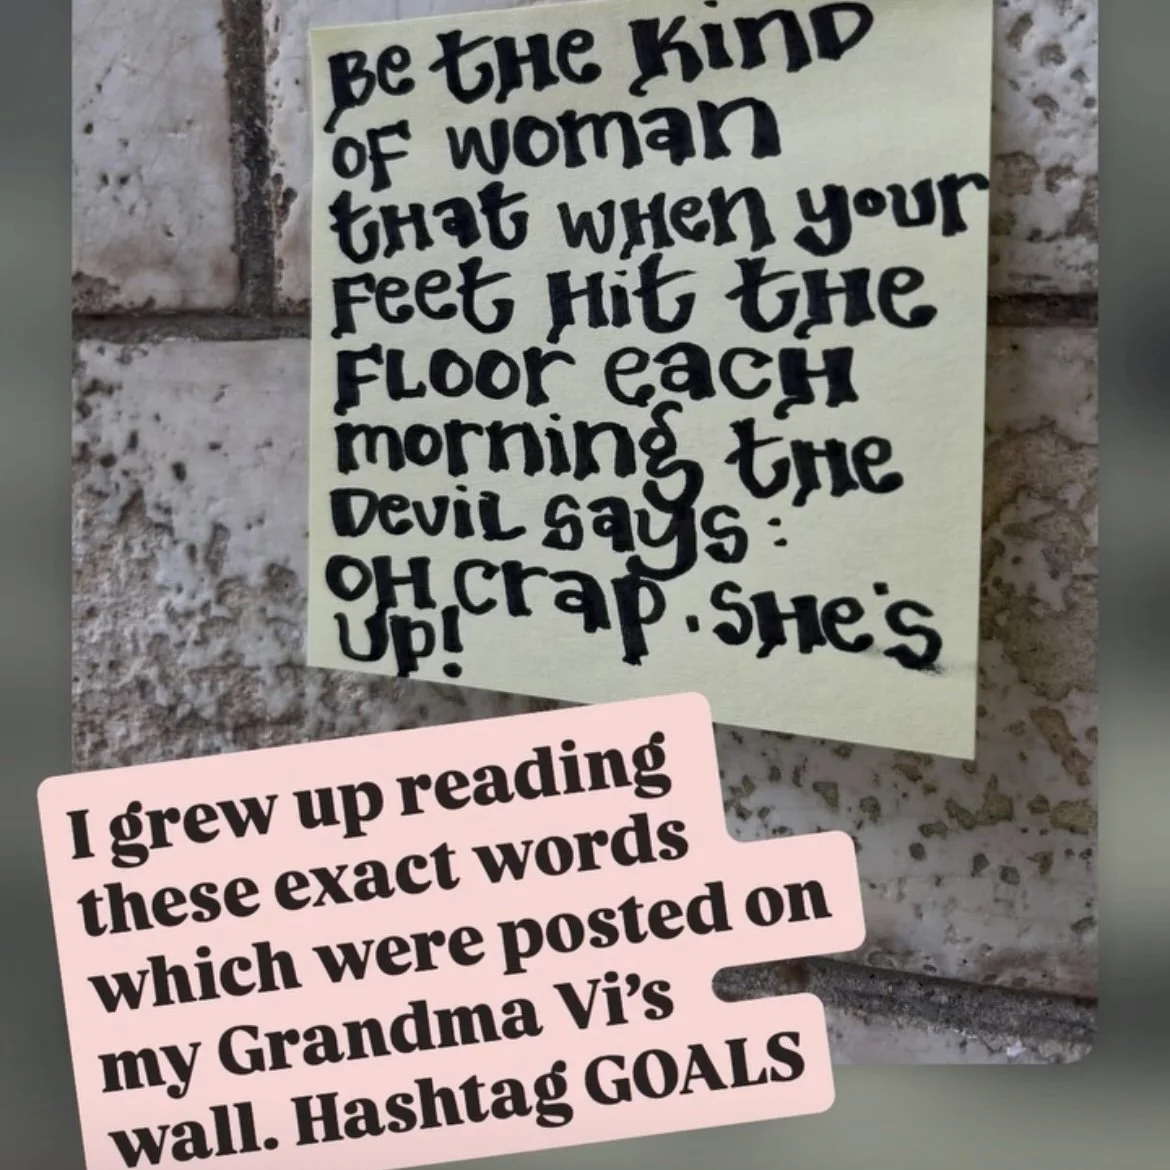 Be THE KinD
OF woman
tHat wHen your
Feet Hit tHe
FLoor eacH
morning tHe
DeviL says:
OH crap. SHe's
up!
I grew up reading
these exact words
which were posted on
my Grandma Vi's
wall. Hashtag GOALS